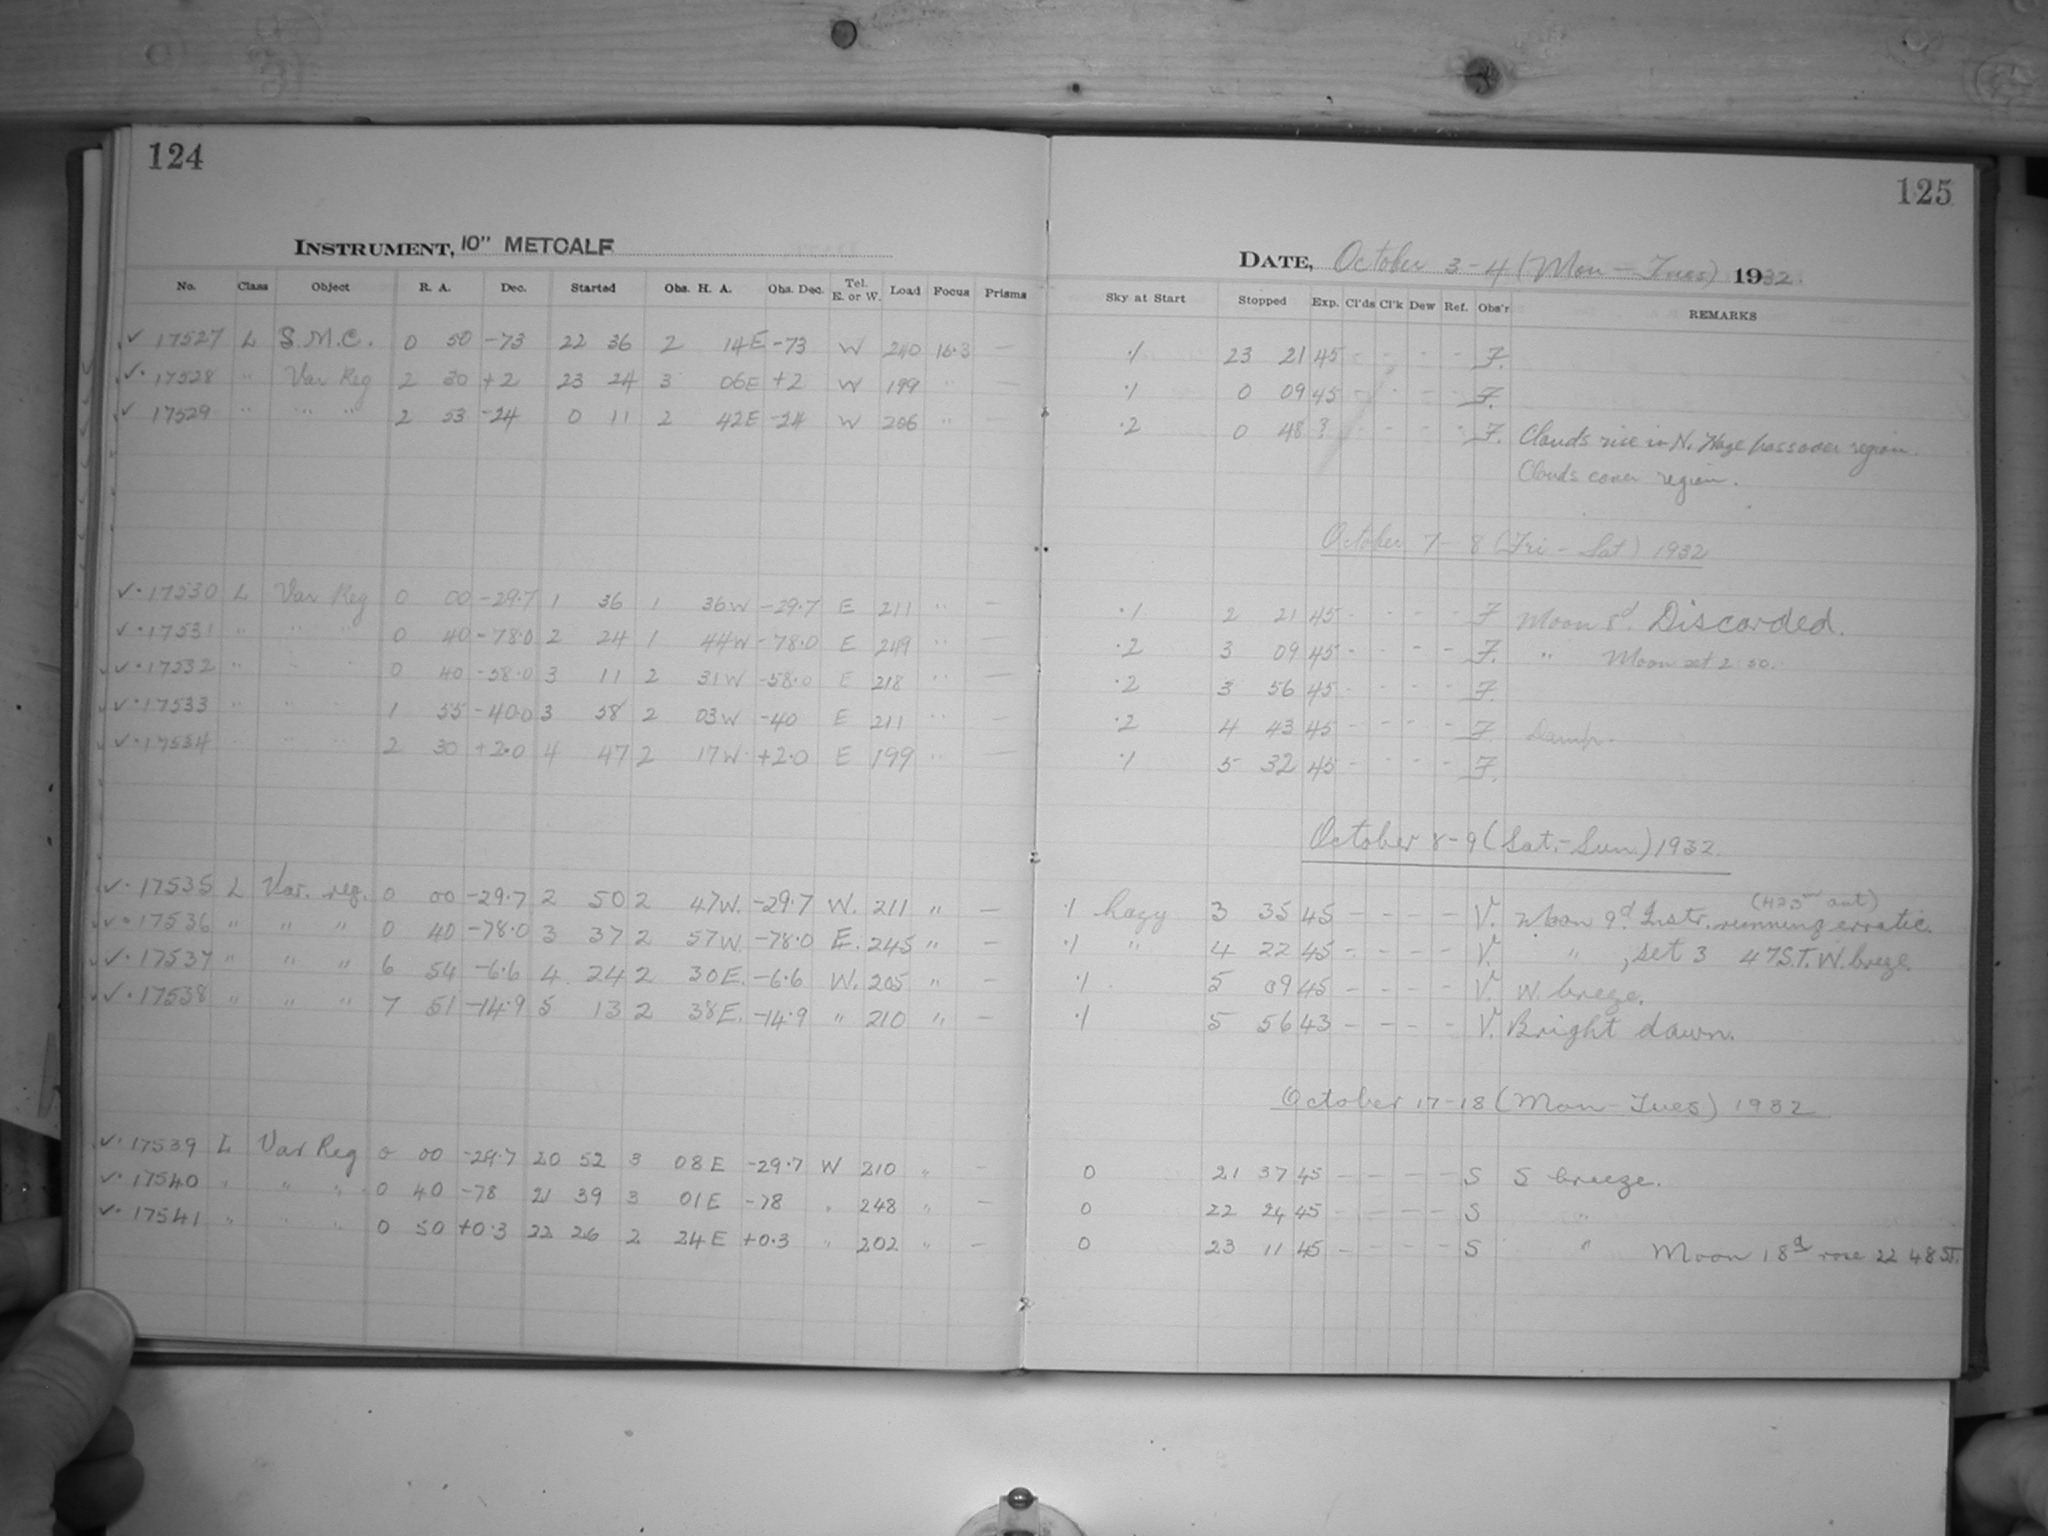 124
125
INSTRUMENT, 10" METCALF
DATE, October 3-4 (Mon - Tues) 1932.
No. Class Object R. A. Dec. Started Obs. H. A. Obs. Dec. Tel. E. or W. Load Focus Prisms Sky at Start Stopped Exp. Cl'ds Cl'k Dew Ref. Obs'r REMARKS
✓ 17527 L S.M.C. 0 50 -73 22 36 2 14E -73 W 240 16.3 — .1 23 21 45 - - - - F.
✓. 17528 " Var Reg 2 30 +2 23 24 3 06E +2 W 199 " — .1 0 09 45 - - - - F.
✓ 17529 " " " 2 53 -24 0 11 2 42E -24 W 206 " — .2 0 48 ? - - - - F. Clouds rise in N. Haze pass over region.
Clouds cover region.
October 7-8 (Fri - Sat) 1932
✓. 17530 L Var Reg 0 00 -29.7 1 36 1 36W -29.7 E 211 " — .1 2 21 45 - - - - F Moon 8d. Discarded.
✓. 17531 " " " 0 40 -78.0 2 24 1 44W -78.0 E 249 " — .2 3 09 45 - - - - F. " Moon set 2 50.
✓. 17532 " " " 0 40 -58.0 3 11 2 31W -58.0 E 218 " — .2 3 56 45 - - - - F.
✓. 17533 " " " 1 55 -40.0 3 58 2 03W -40 E 211 " — .2 4 43 45 - - - - F. Damp.
✓. 17534 " " " 2 30 +2.0 4 47 2 17W +2.0 E 199 " — .1 5 32 45 - - - - F.
October 8-9 (Sat.-Sun.) 1932.
✓. 17535 L Var. reg. 0 00 -29.7 2 50 2 47W. -29.7 W. 211 " — .1 hazy 3 35 45 - - - - V. Moon 9d. Instr. running erratic.
✓. 17536 " " " 0 40 -78.0 3 37 2 57W. -78.0 E. 245 " — .1 " 4 22 45 - - - - V. " , set 3 47 S.T. W. breze.
✓. 17537 " " " 6 54 -6.6 4 24 2 30E. -6.6 W. 205 " — .1 5 09 45 - - - - V. W. breeze.
✓. 17538 " " " 7 51 -14.9 5 13 2 38E. -14.9 " 210 " — .1 5 56 43 - - - - V. Bright dawn.
October 17-18 (Mon - Tues) 1932
✓. 17539 L Var Reg 0 00 -29.7 20 52 3 08E -29.7 W 210 " — 0 21 37 45 - - - - S S breeze.
✓. 17540 " " " 0 40 -78 21 39 3 01E -78 " 248 " — 0 22 24 45 - - - - S "
✓. 17541 " " " 0 50 +0.3 22 26 2 24E +0.3 " 202 " — 0 23 11 45 - - - - S " Moon 18d rose 22 48 ST.